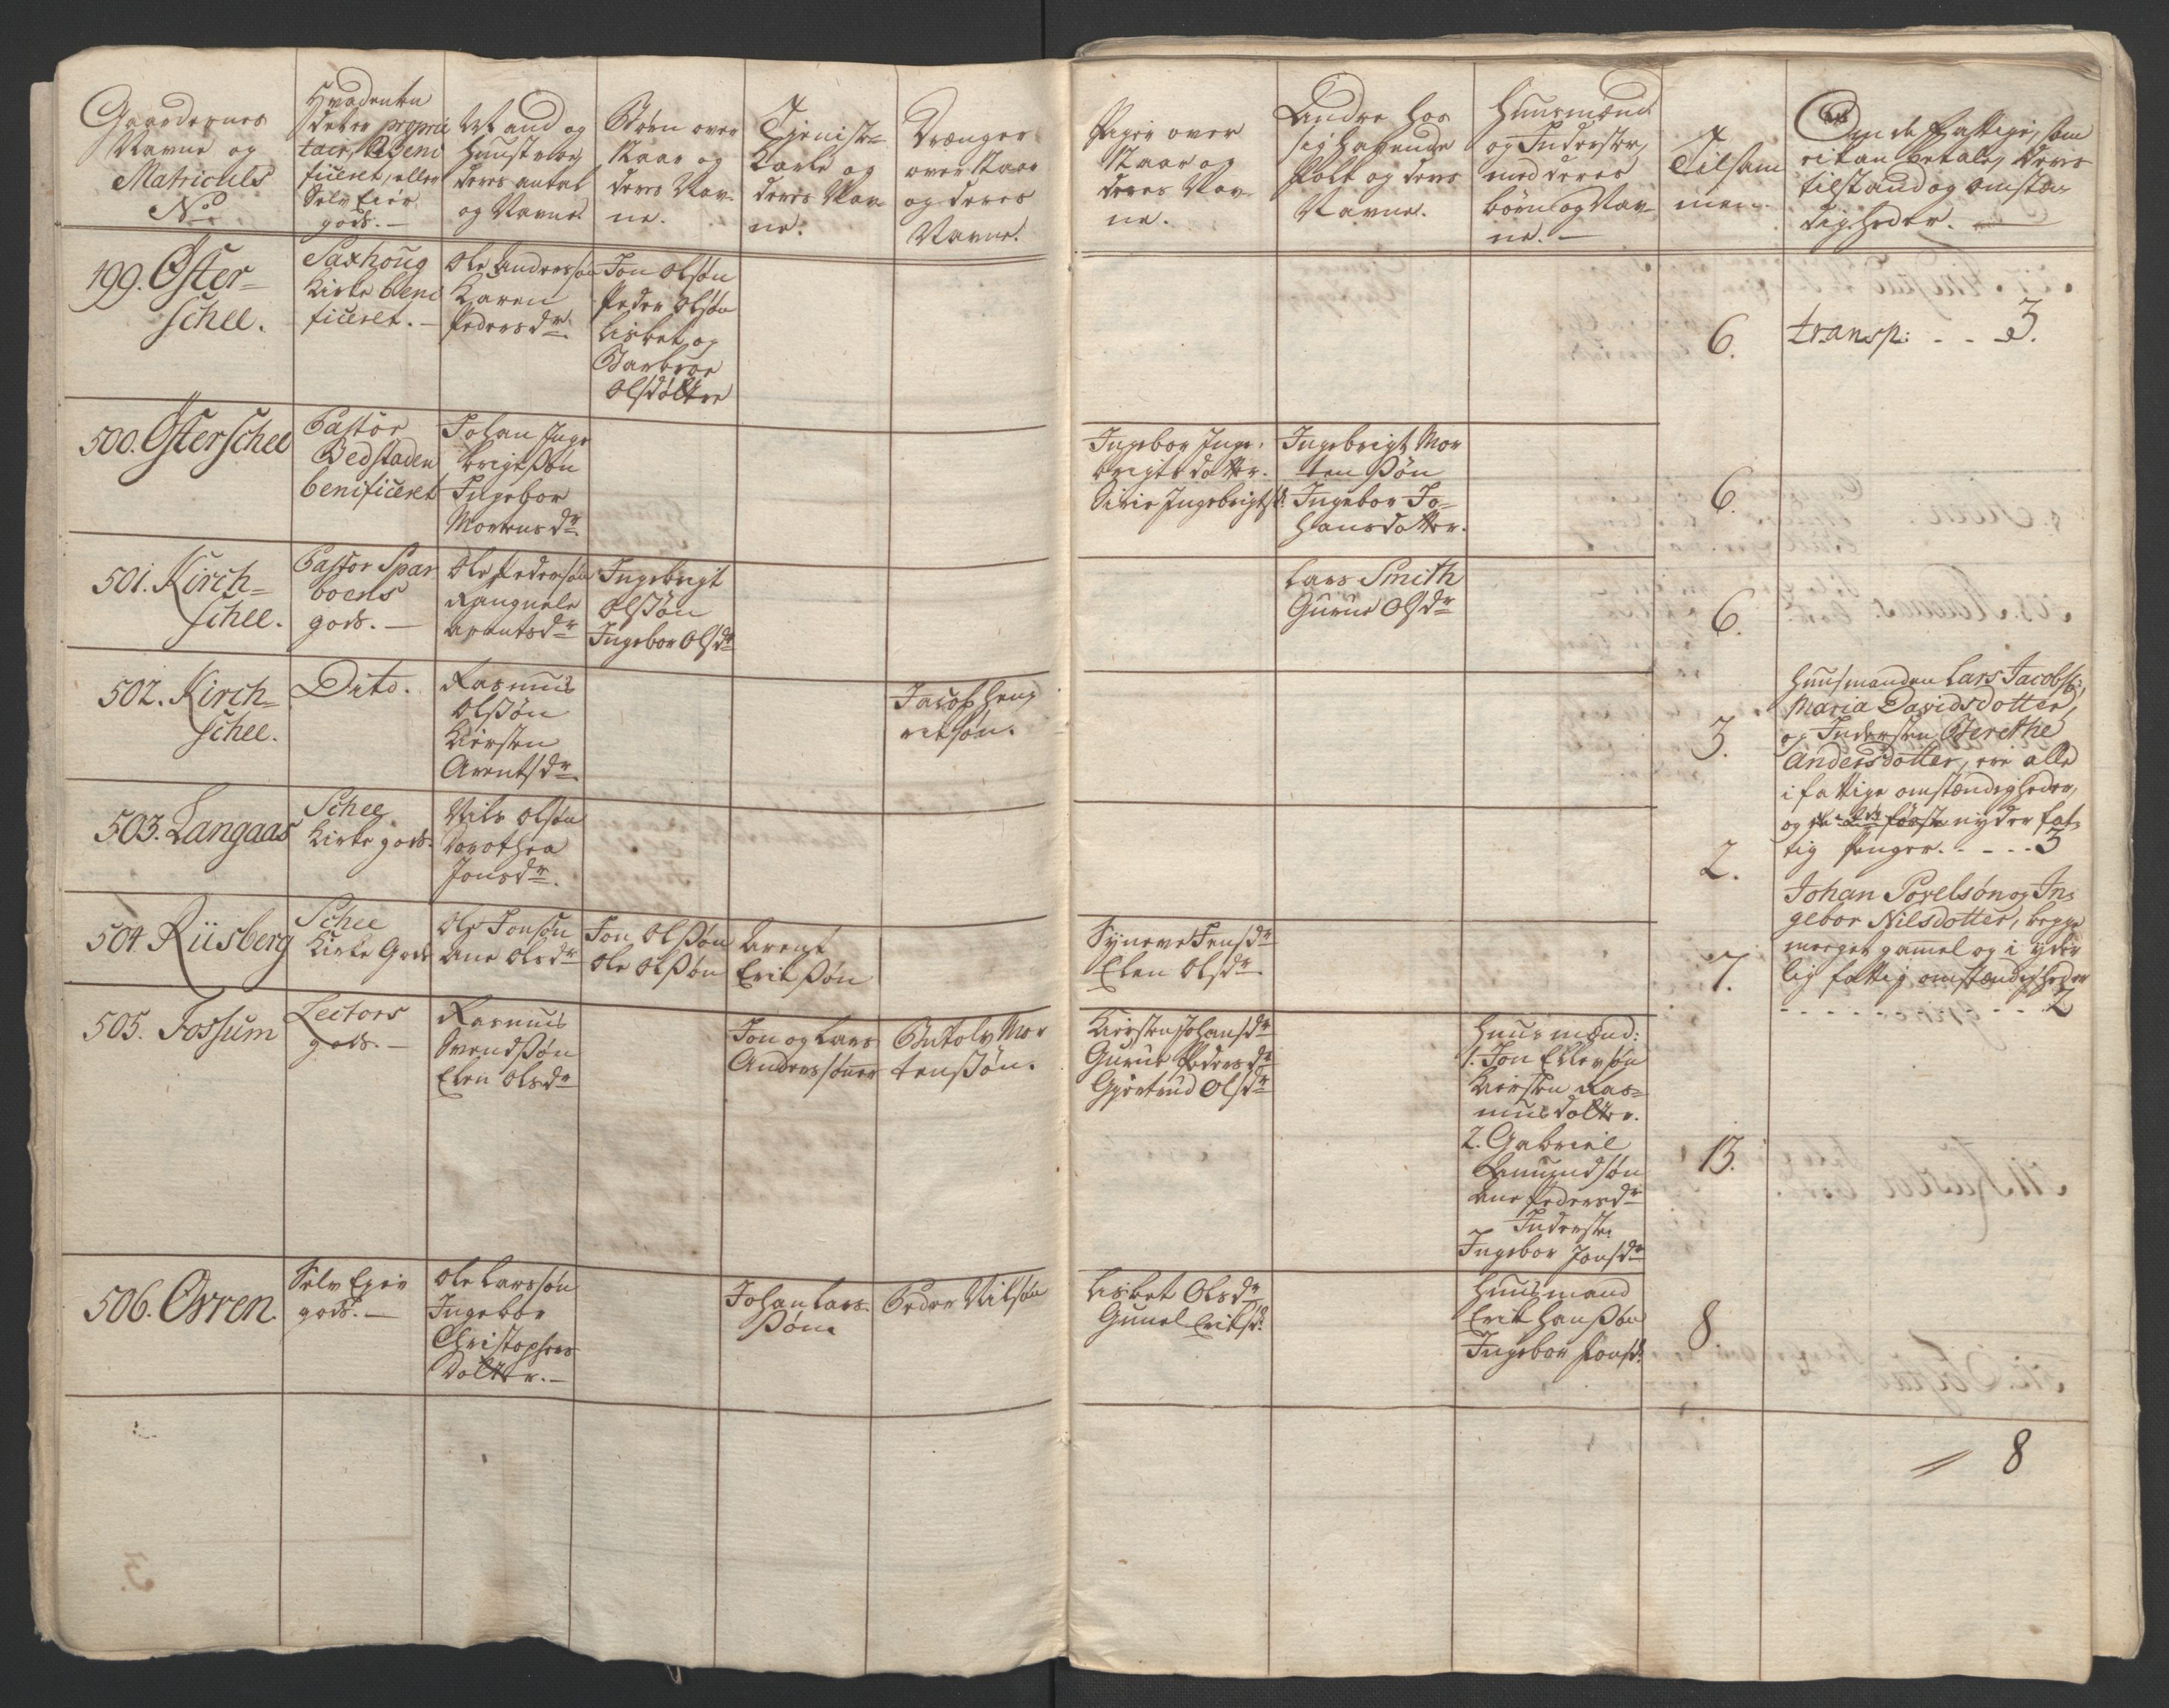 Gaardernes
Navne og
Matriculs
No.
Hvadenten
det er proprie
tair, Beni
ficeret, eller
Selv Eier
gods. —
Mand og
Hustrue,
deres antal
og Navne.
Børn over
8te aar og
deres Nav-
ne.
Tjeniste-
Karle og
deres Nav-
ne.
Drænger
over 8te aar
og deres
Navne.
Piger over
8te aar og
deres Nav-
ne.
Andre hos
sig hafvende
Folk og deres
Navne.
Huusmænd
og Inderster,
med deres
børn og Nav-
ne. —
Tilsam
men.
Om de Fattige, som
ei kan betale, Deres
tilstand og omstæn-
digheder. —
499. Øster=
schee.
Saxhoug
Kirke beni
ficeret. —
Ole Anderssøn
Karen
Pedersdr.
Jon Olsøn
Peder Olsøn
Lisbet og
Barbroe
Olsdøttre
6.
transp: - - 3.
500. Østerschee
Pastor
Bedstaden
benificeret
Johan Inge
brigtsøn
Ingebor
Mortensdr.
Ingebor Inge-
brigtsdatter.
Sirie Ingebrigtsd:
Ingebrigt Mor
tensøn
Ingebor Jo-
hansdatter.
6.
501. Kirch=
schee.
Pastor Spar
boens
gods. —
Ole Pedersøn
Rangnele
Arentsdr
Ingebrigt
Olsøn
Ingebor Olsdr
Lars Smith
Gurue Olsdr
6.
502. Kirch=
schee.
Dito.
Rasmus
Olsøn
Kirsten
Arentsdr.
Jacob Hen
richsøn.
3.
Huusmanden Lars Jacobs:,
Maria Davidsdotter,
og Indersten Berethe
Andersdotter, ere alle
i fattige omstændigheder,
og de 2de første nyder fat-
tig penger. - - - 3
503. Langaas
Schee
Kirke gods.
Nils Olsøn
Dorothea
Jonsdr.
2.
Johan Povelsøn og In-
gebor Nilsdotter, begge
meeget gamel og i yder
lig fattig omstændigheder
- - - - - - - - 2
504. Riisberg
Schee
Kirke Gods
Ole Jonsøn
Ane Olsdr
Jon Olsøn
Ole Olsøn
Arent
Eriksøn
Synneve Jensdr
Elen Olsdr.
7.
505. Fossum
Lectors
gods. —
Rasmus
Svendsøn
Elen Olsdr
Jon og Lars
Anderssønner
Botolv Mor
tensøn.
Kirsten Johansdr
Gurue Pedersdr
Gjertrud Olsdr
Huusmænd:
1. Jon Ellevsøn
Kirsten Ras=
musdatter.
2. Gabriel
Amundsøn
Ane Pedersdr
Inderste
Ingebor Jonsdr
13.
506. Orren.
Selv Ejer
gods. —
Ole Larssøn
Ingebor
Christophers
datter. —
Johan Lars-
søn.
Peder Nilsøn
Lisbet Olsdr
Gunel Eriksd:
Huusmand
Erik Hansøn
Ingebor Jonsd:
8
= 8